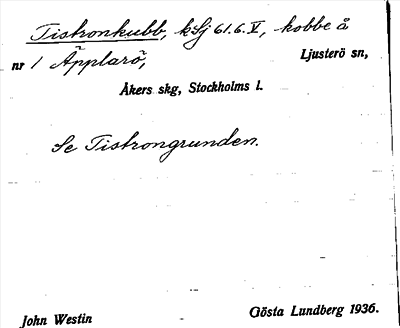 Tiskronkubb, kSj 61.6.V, kobbe å
nr 1 Äpplarö, Ljusterö sn,
Åkers skg, Stockholms l.
Se Tiskrongrunden.
John Westin Gösta Lundberg 1936.